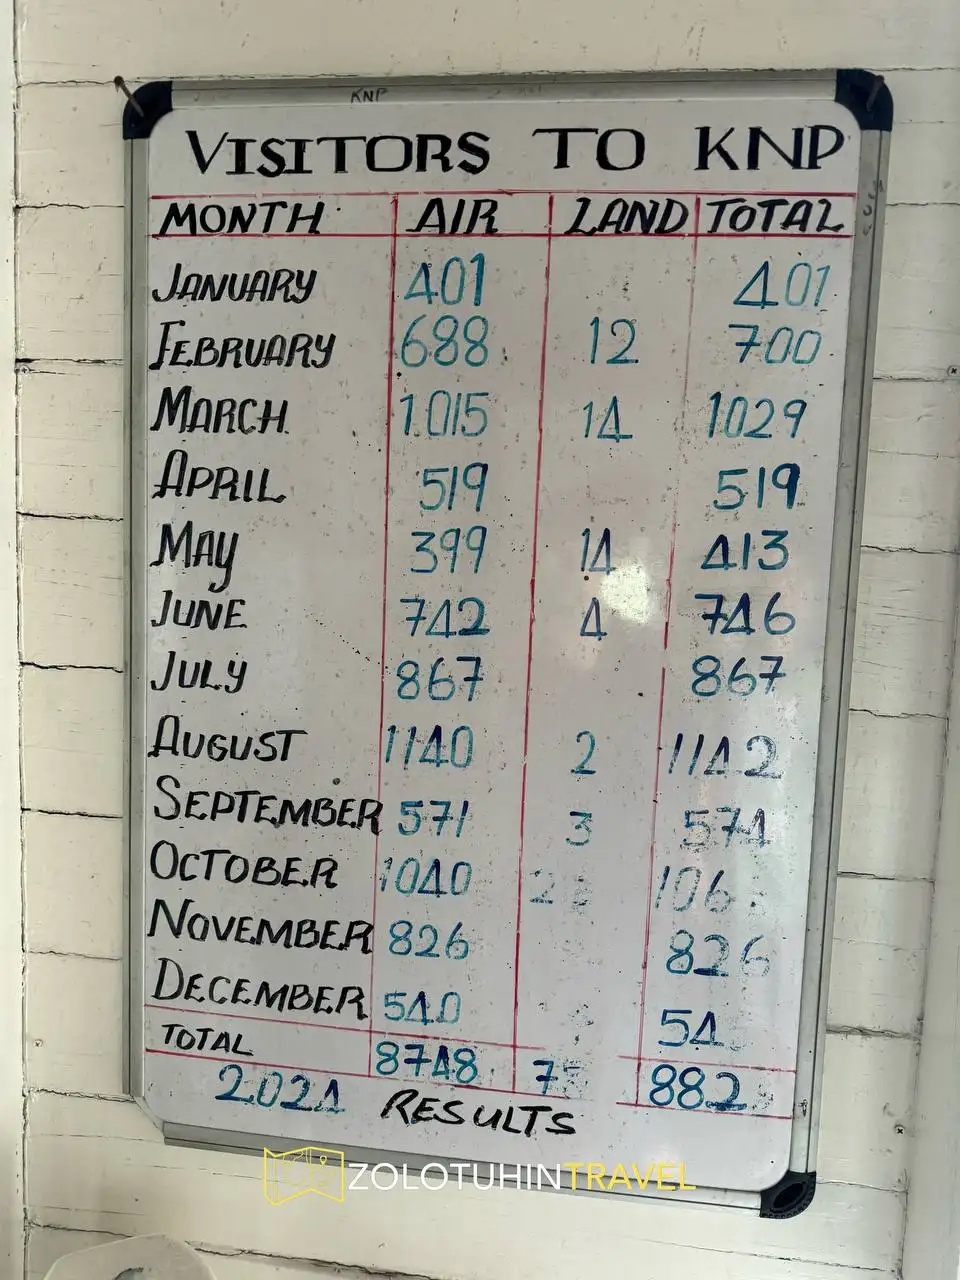 KNP
VISITORS TO KNP
MONTH AIR LAND TOTAL
JANUARY 401 401
FEBRUARY 688 12 700
MARCH 1015 14 1029
APRIL 519 519
MAY 399 14 413
JUNE 742 4 746
JULY 867 867
AUGUST 1140 2 1142
SEPTEMBER 571 3 574
OCTOBER 1040
NOVEMBER 826 826
DECEMBER 540
TOTAL 8748
2024 RESULTS
ZOLOTUHINTRAVEL